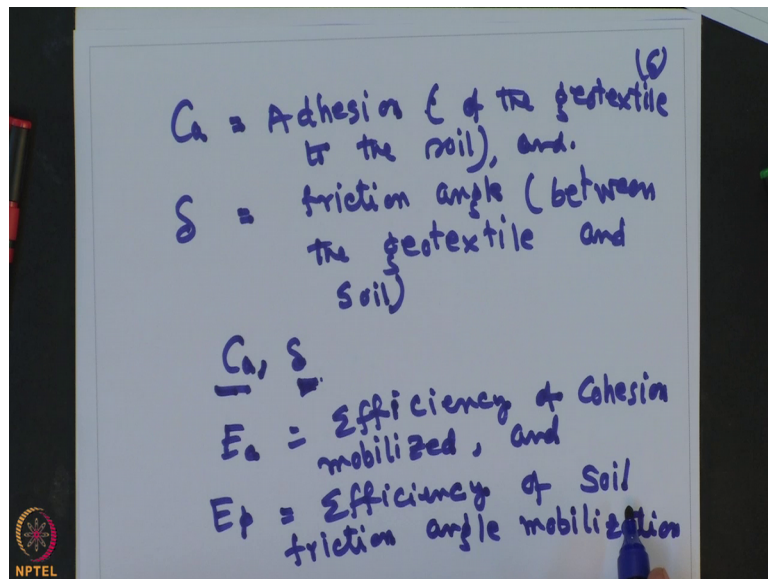 (6)
Ca = Adhesion ( of the geotextile
to the soil), and.
δ = friction angle (between
the geotextile and
soil)
Ca, δ
Ea = Efficiency of Cohesion
mobilized, and
Eϕ = Efficiency of Soil
friction angle mobilization
NPTEL